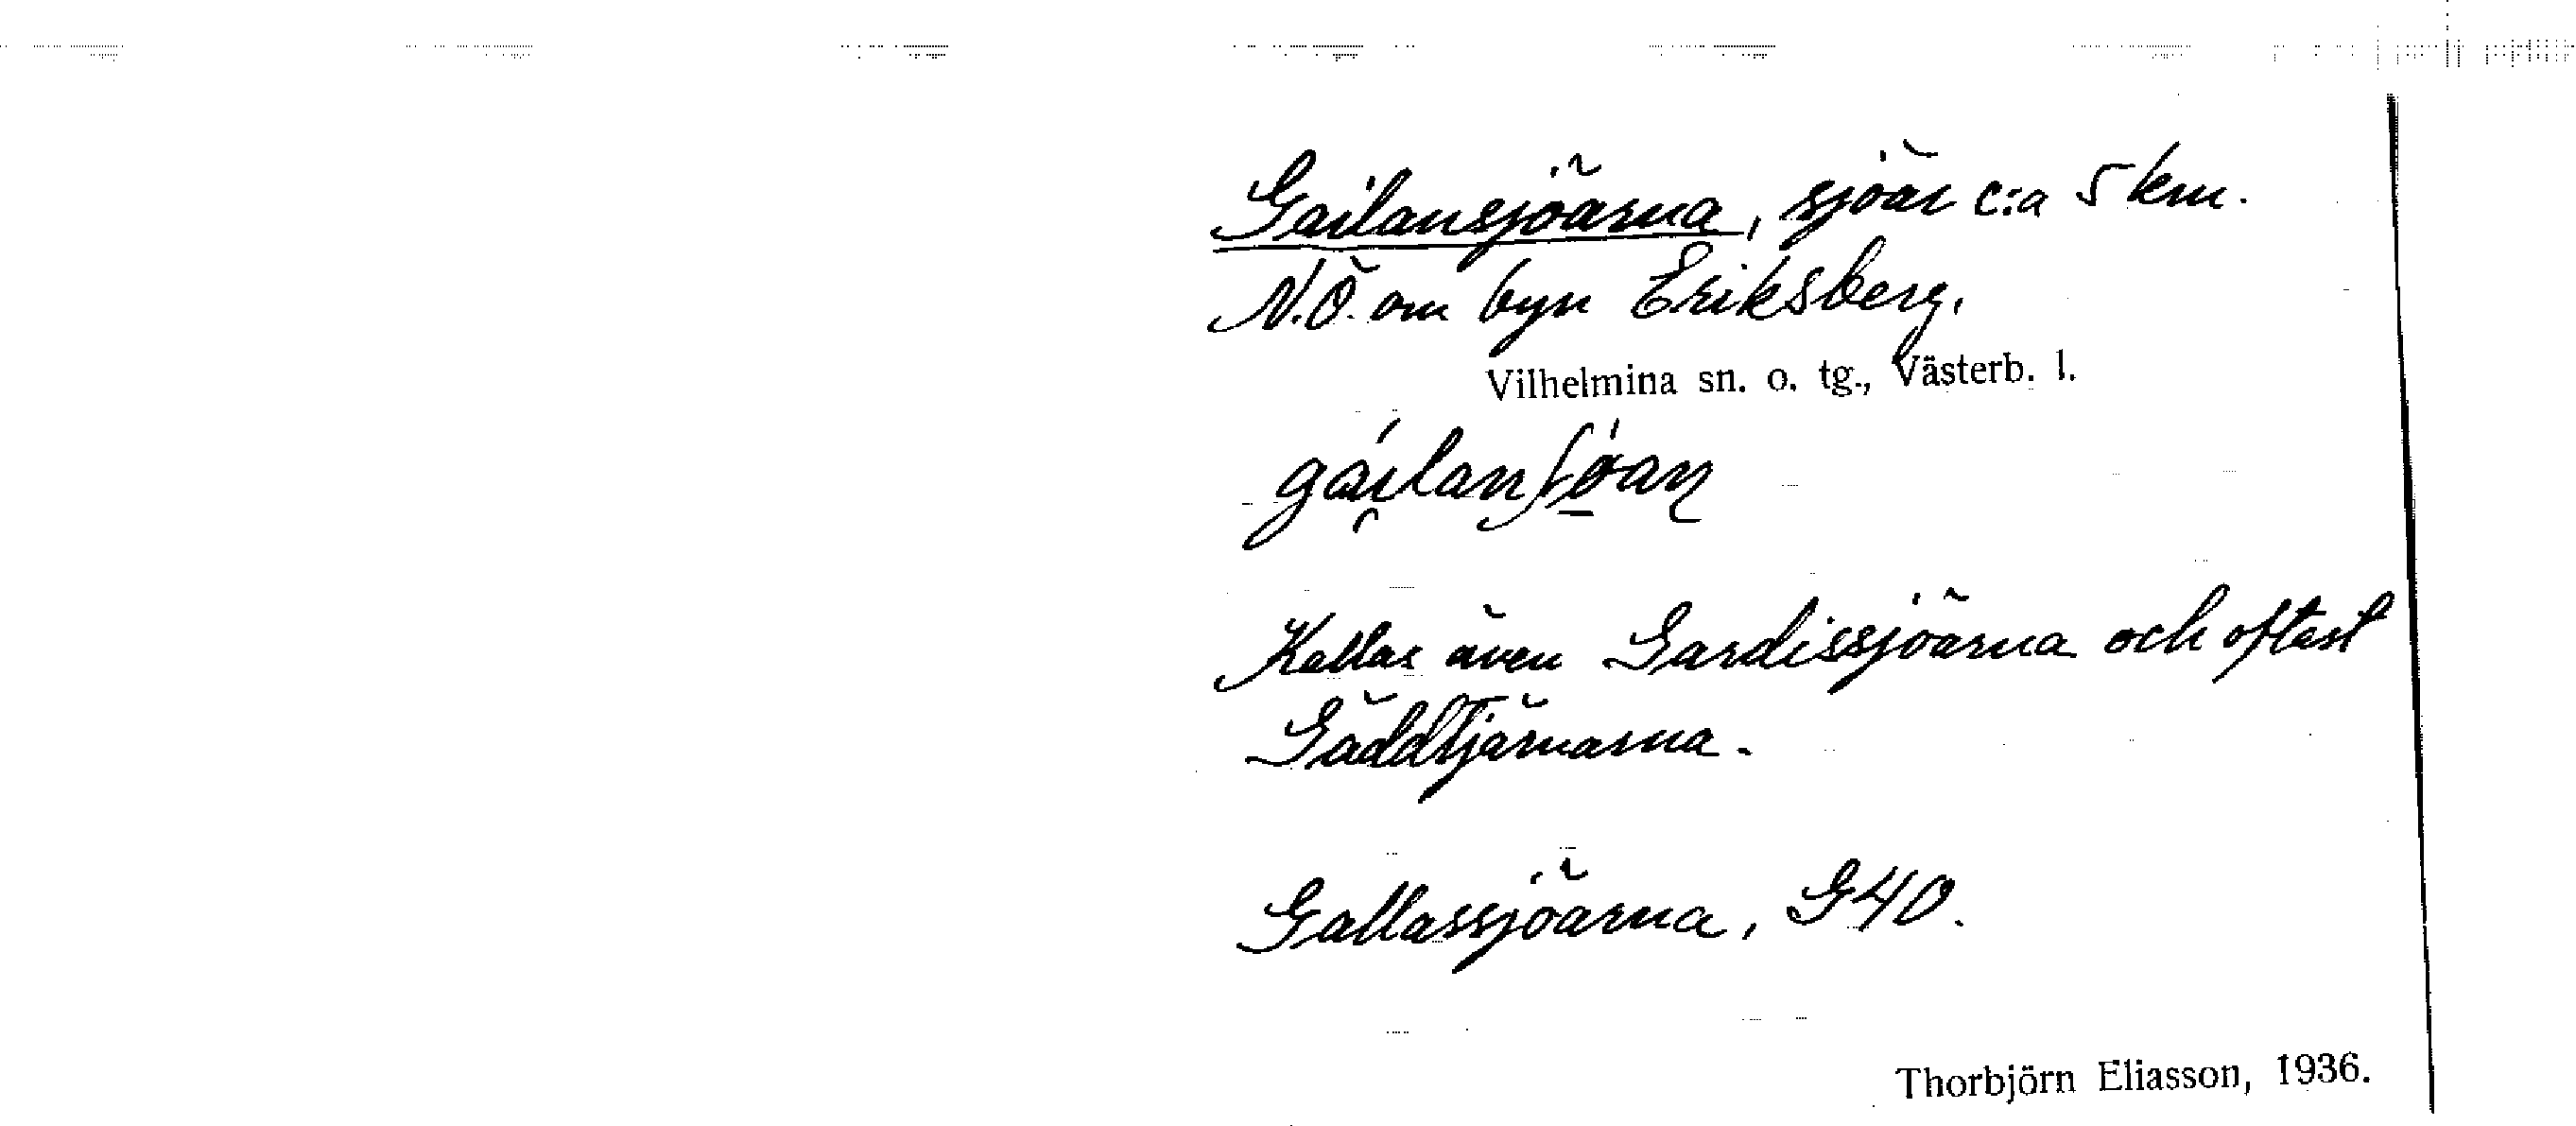 Gailansjöarna, sjöar c:a 5 km.
N.Ö. om byn Eriksberg.
Vilhelmina sn. o. tg., Västerb. l.
Kallas även Gardissjöarna och oftast
Gäddtjärnarna.
Gallassjöarna, G40.
Thorbjörn Eliasson, 1936.